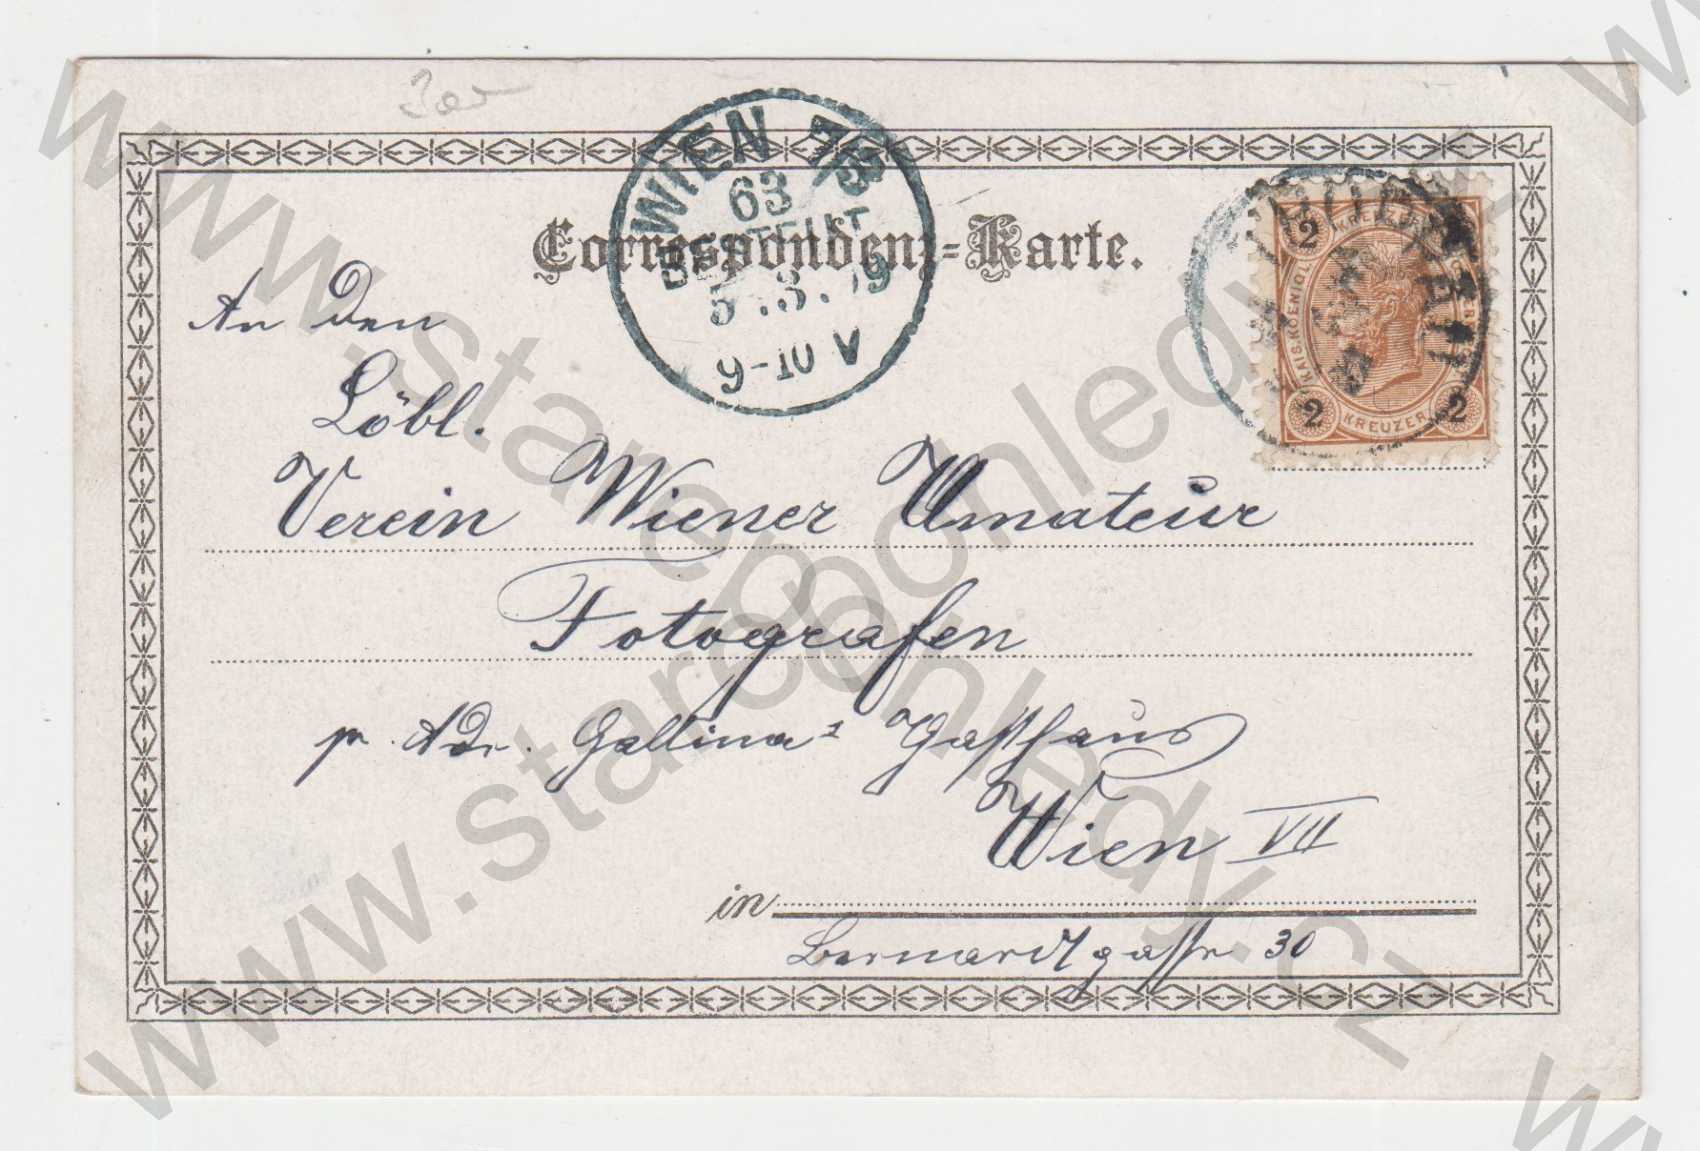 WIEN 7/3
63
BESTELLT
5.3.99
9-10 V
Correspondenz-Karte.
2 KREUZER
KAIS.KOENIGL.
2 KREUZER 2
An den
Löbl.
Verein Wiener Amateur
Fotografen
pr. Adr. Gallina's Gasthaus
Wien VII
in
Bernardgasse 30
www.starepohledy.cz
www.starepohledy.cz